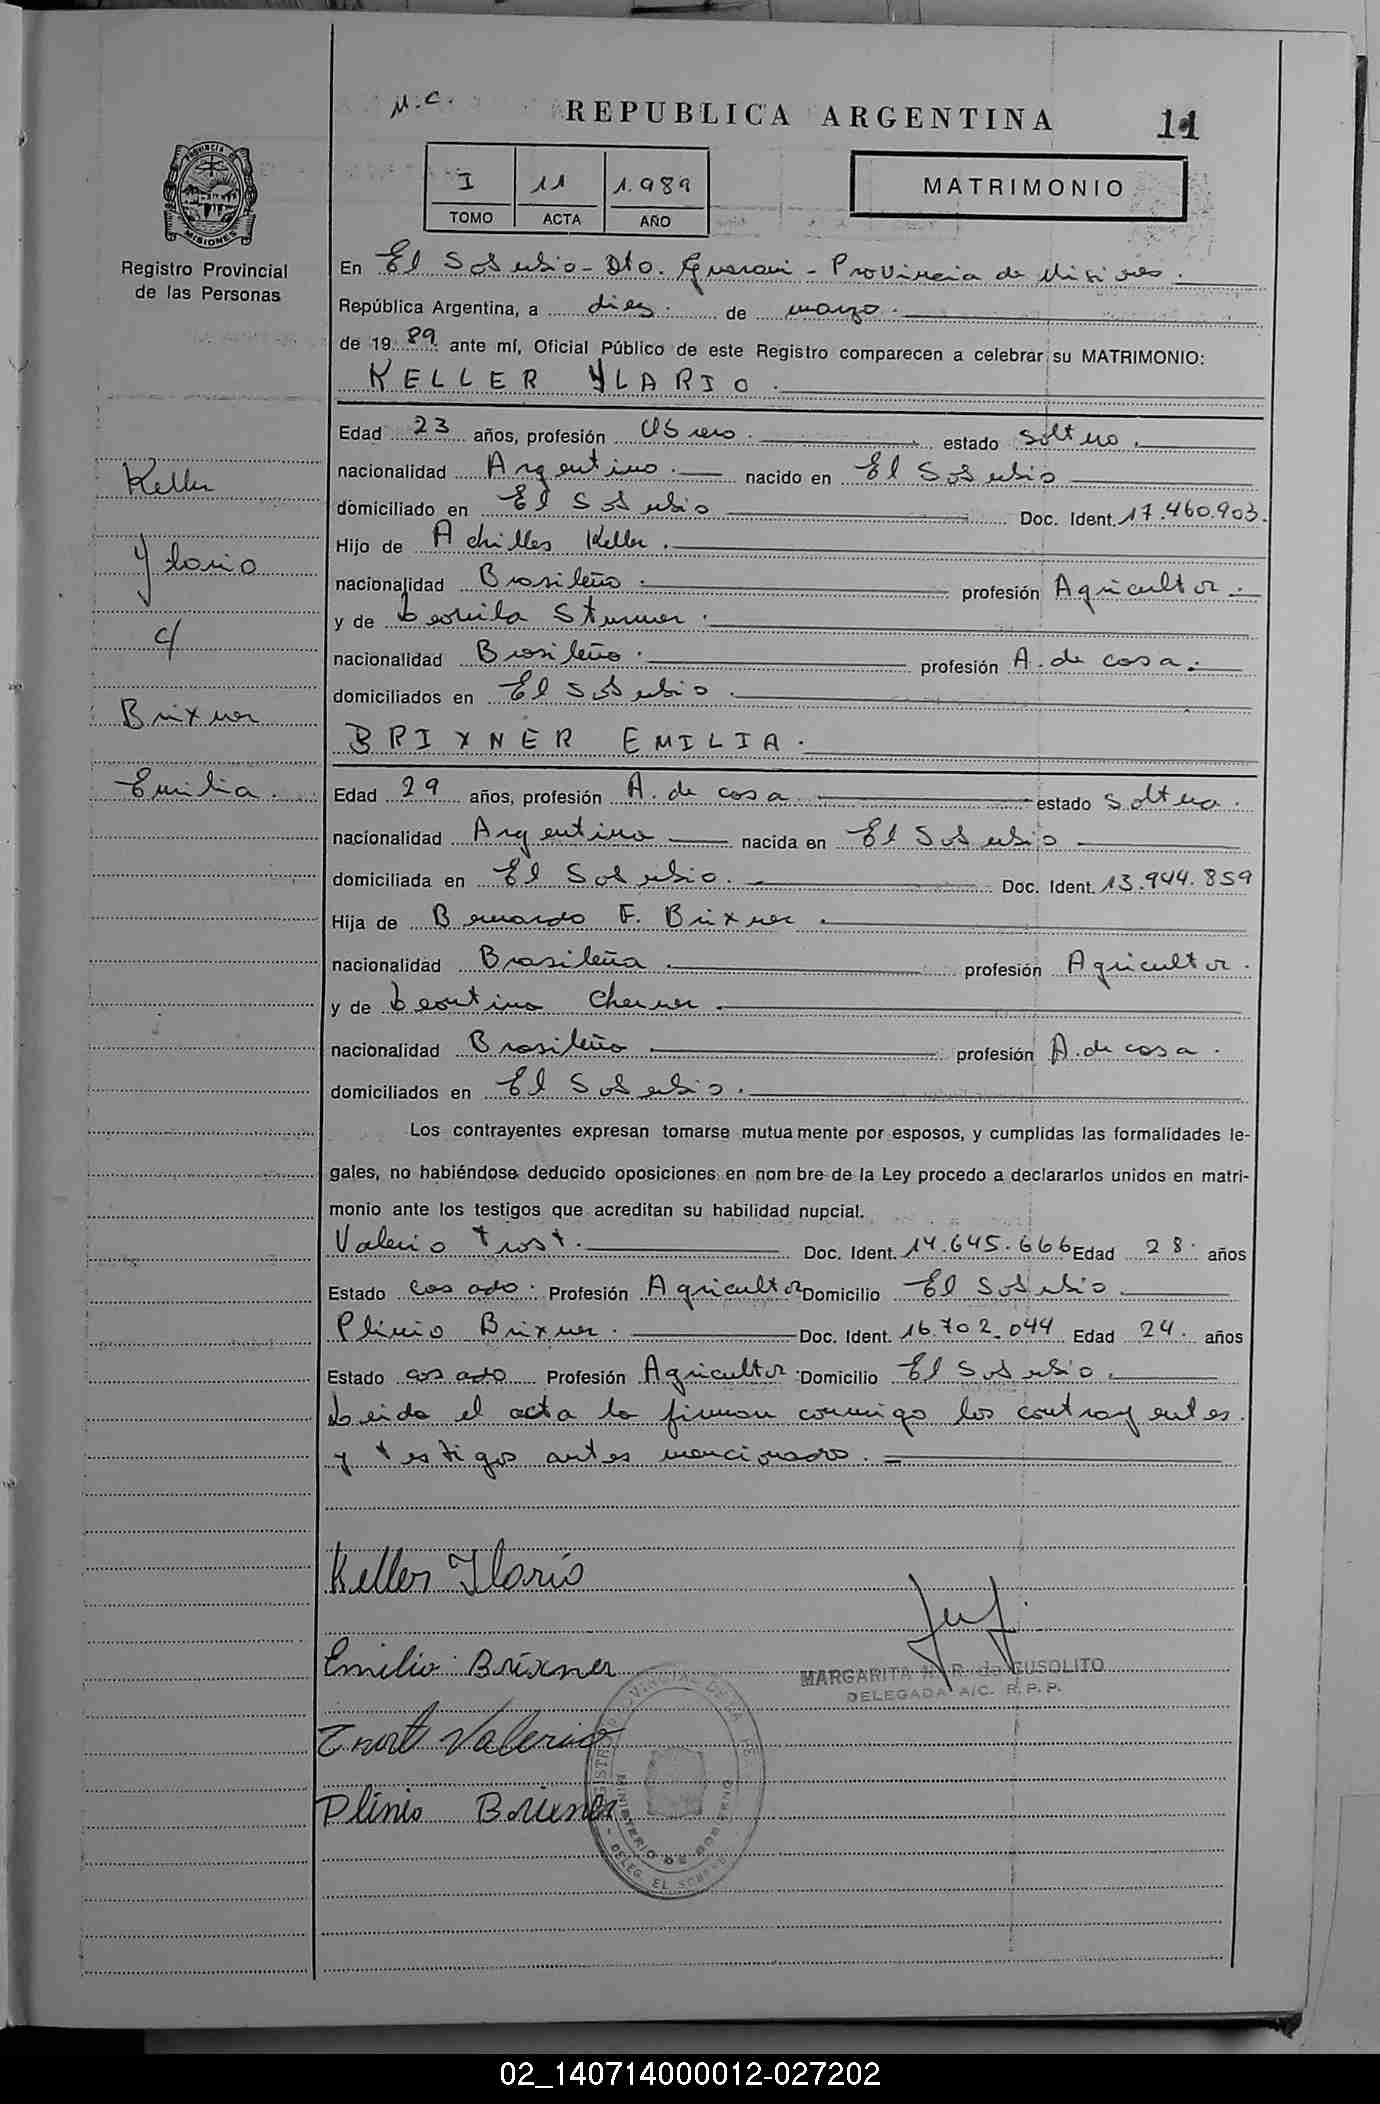 M.C.
REPUBLICA ARGENTINA
11
PROVINCIA DE
MISIONES
Registro Provincial
de las Personas
I 11 1.989
TOMO ACTA AÑO
MATRIMONIO
En El Soberbio - Dto. Guarani - Provincia de Misiones.
República Argentina, a diez. de marzo.
de 19 89. ante mí, Oficial Público de este Registro comparecen a celebrar su MATRIMONIO:
KELLER YLARIO.
Edad 23 años, profesión Obrero. estado soltero.
nacionalidad Argentino. nacido en El Soberbio
domiciliado en El Soberbio Doc. Ident. 17.460.903.
Hijo de Achilles Keller.
nacionalidad Brasileño. profesión Agricultor.
y de Leonila Sturmer.
nacionalidad Brasileño. profesión A. de casa.
domiciliados en El Soberbio.
BRIXNER EMILIA.
Edad 29 años, profesión A. de casa estado soltera.
nacionalidad Argentina nacida en El Soberbio
domiciliada en El Soberbio. Doc. Ident. 13.944.859
Hija de Bernardo F. Brixner.
nacionalidad Brasileña. profesión Agricultor.
y de Leontina Cherner.
nacionalidad Brasileño profesión A. de casa.
domiciliados en El Soberbio.
Los contrayentes expresan tomarse mutuamente por esposos, y cumplidas las formalidades le-
gales, no habiéndose deducido oposiciones en nombre de la Ley procedo a declararlos unidos en matri-
monio ante los testigos que acreditan su habilidad nupcial.
Valerio Trost. Doc. Ident. 14.645.666 Edad 28. años
Estado casado. Profesión Agricultor Domicilio El Soberbio.
Plinio Brixner. Doc. Ident. 16.702.044 Edad 24. años
Estado casado Profesión Agricultor Domicilio El Soberbio.
Leida el acta la firman conmigo los contrayentes
y testigos antes mencionados. =
Keller
Ylario
c/
Brixner
Emilia.
Keller Ilario
Emilia Brixner
MARGARITA R. de CUSOLITO
DELEGADA A/C. R.P.P.
Trost Valerio
Plinio Brixner
MINISTERIO DE GOBIERNO
DELEG. EL SOBERBIO
02_140714000012-027202